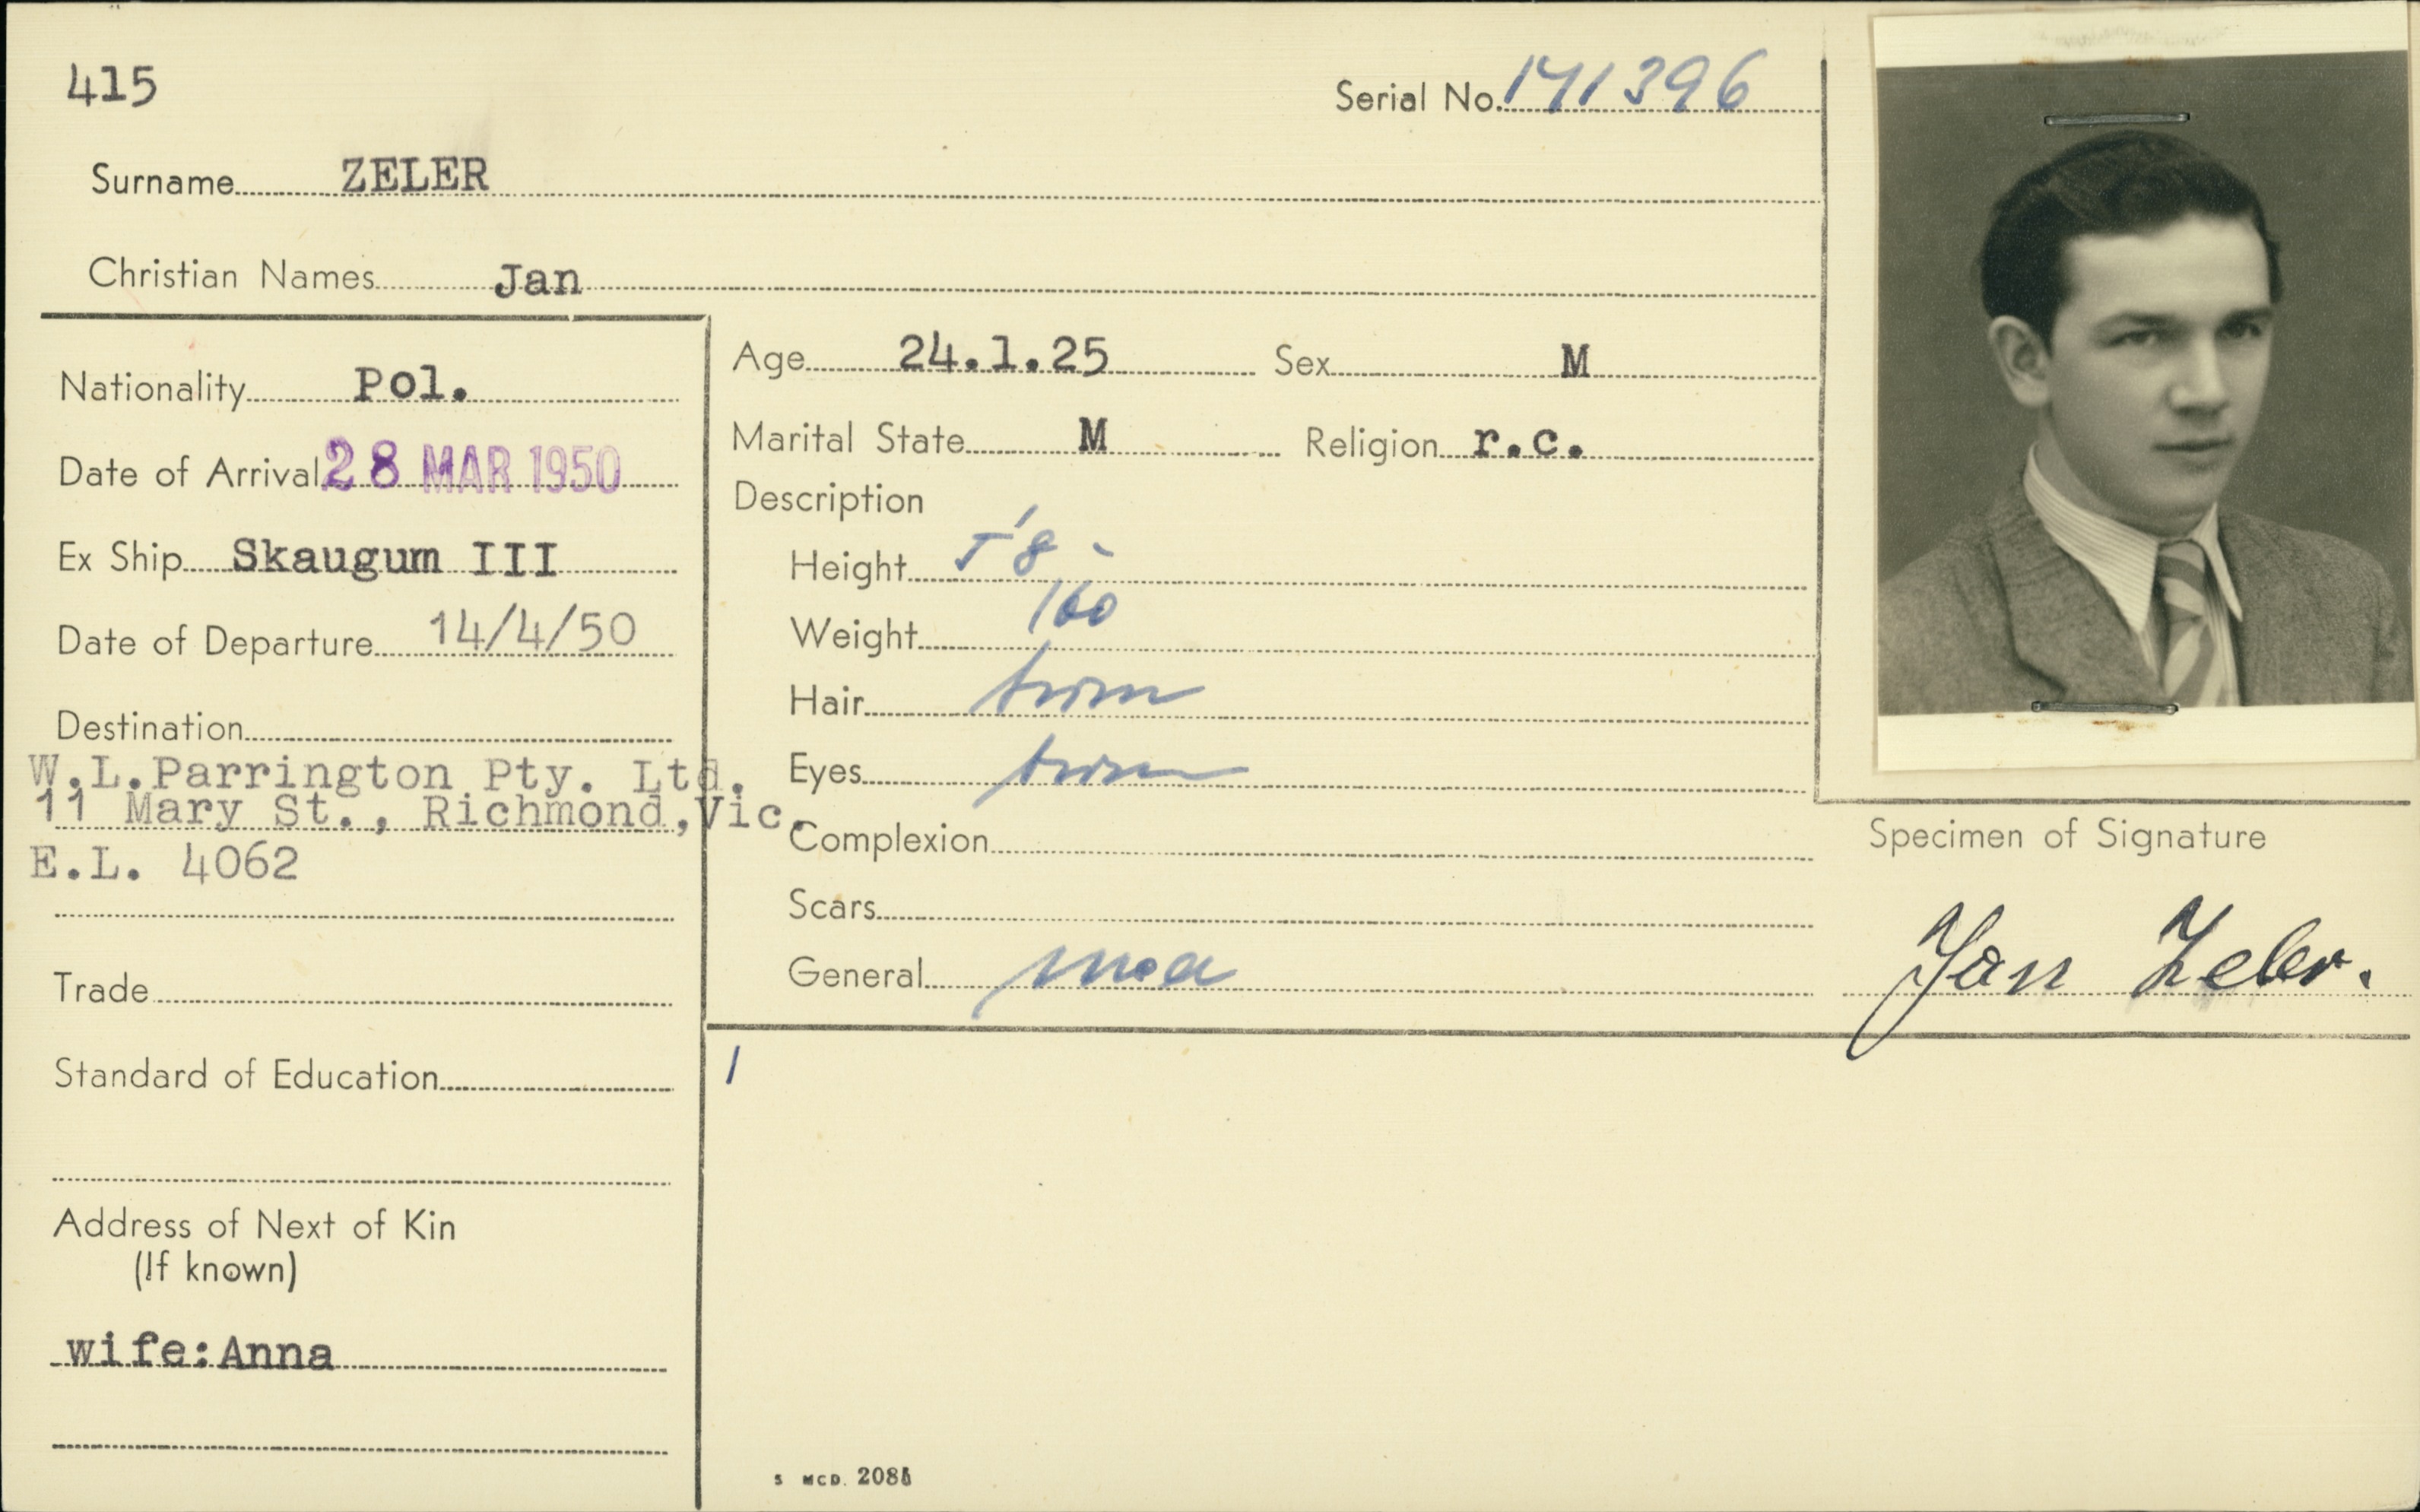 415
Serial No. 171396
Surname ZELER
Christian Names Jan
Nationality Pol.
Date of Arrival 28 MAR 1950
Ex Ship Skaugum III
Date of Departure 14/4/50
Destination
W.L.Parrington Pty. Ltd.
11 Mary St., Richmond,Vic.
E.L. 4062
Trade
Standard of Education
Address of Next of Kin
(If known)
wife:Anna
Age 24.1.25 Sex M
Marital State M Religion r.c.
Description
Height 5'8
Weight 160
Hair
Eyes
Complexion
Scars
General
1
S MCD. 208
Specimen of Signature
Jan Zeler.